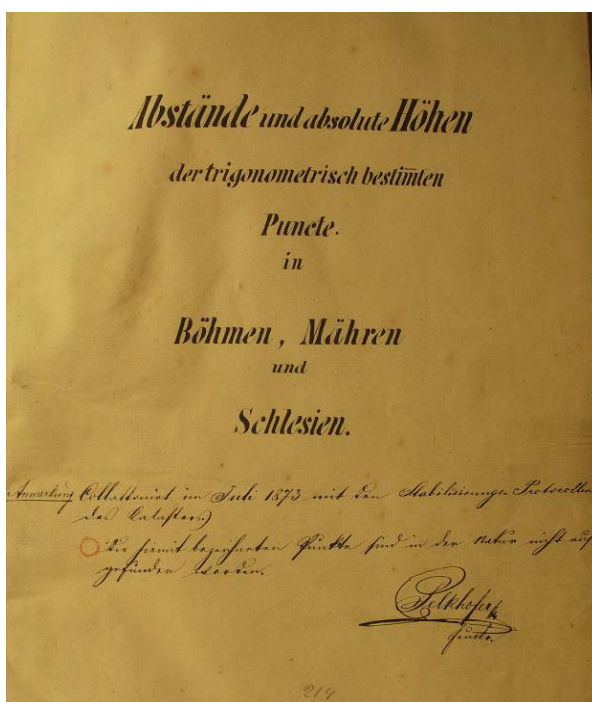 Abstände und absolute Höhen
der trigonometrisch bestim̄ten
Puncte.
in
Böhmen, Mähren
und
Schlesien.
Anmerkung Collationirt im Juli 1873 mit den Stabilisirungs-Protocollen
des Katasters
die hiemit bezeichneten Punkte sind in der Natur nicht auf
gefunden worden.
Pelkhofer
214